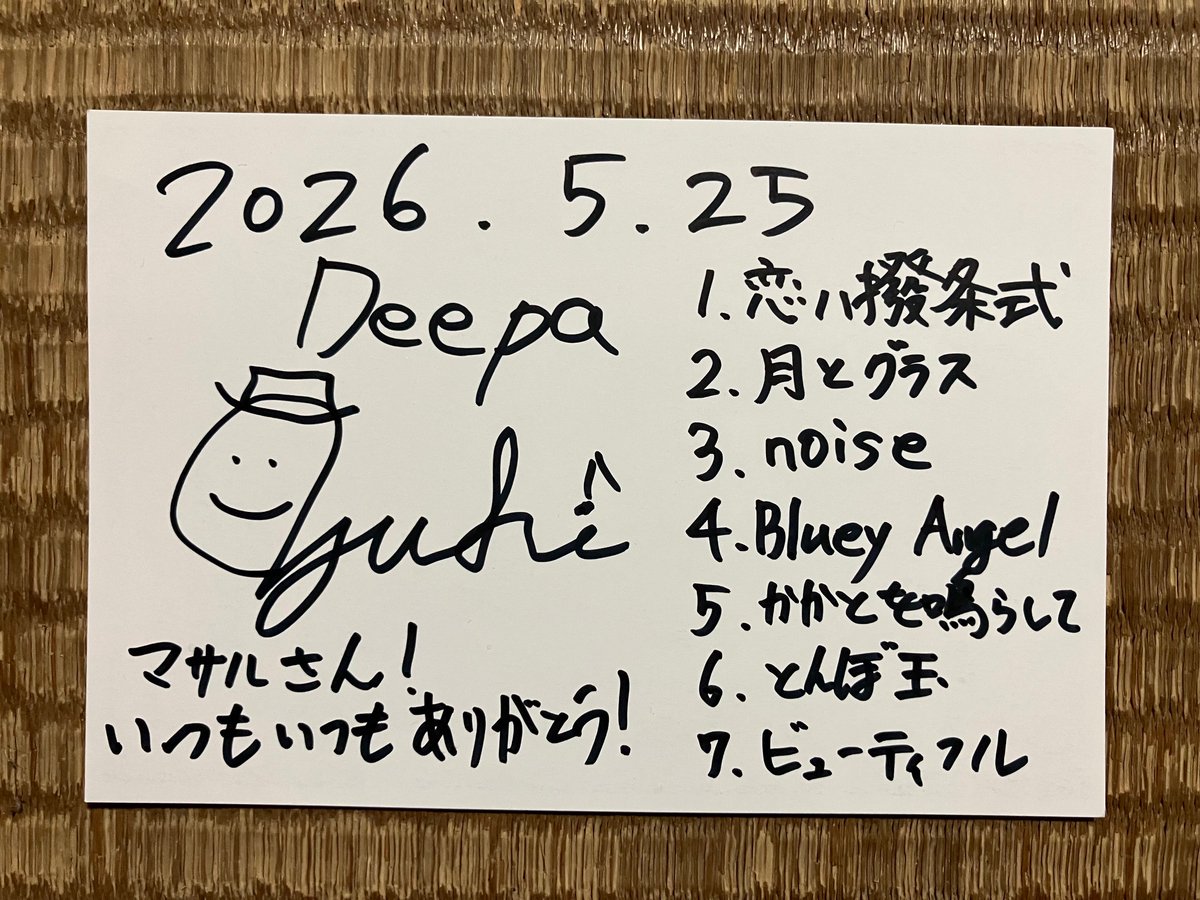 2026.5.25
Deepa
yuhi
マサルさん!
いつもいつもありがとう!
1.恋ハ撥条式
2.月とグラス
3.noise
4.Bluey Angel
5.かかとを鳴らして
6.とんぼ玉
7.ビューティフル